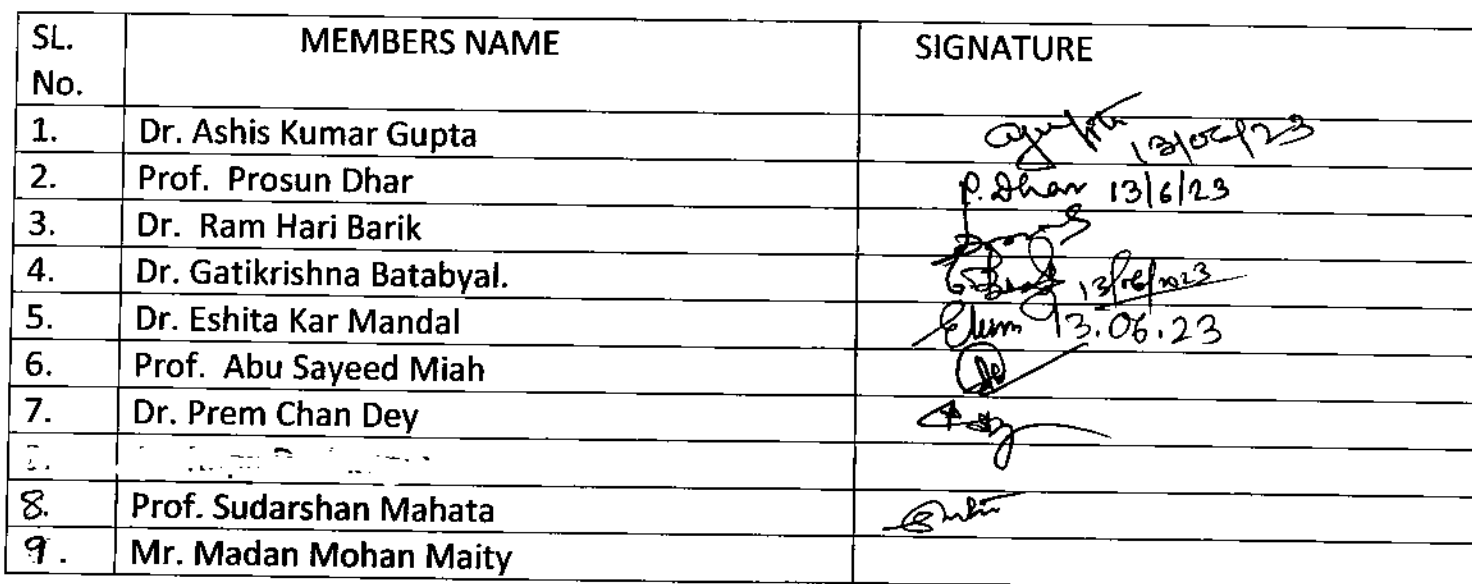 SL. No. MEMBERS NAME SIGNATURE
1. Dr. Ashis Kumar Gupta 13/06/23
2. Prof. Prosun Dhar P. Dhar 13/6/23
3. Dr. Ram Hari Barik
4. Dr. Gatikrishna Batabyal. 13/06/2023
5. Dr. Eshita Kar Mandal 13.06.23
6. Prof. Abu Sayeed Miah
7. Dr. Prem Chan Dey
8. Prof. Sudarshan Mahata
9. Mr. Madan Mohan Maity